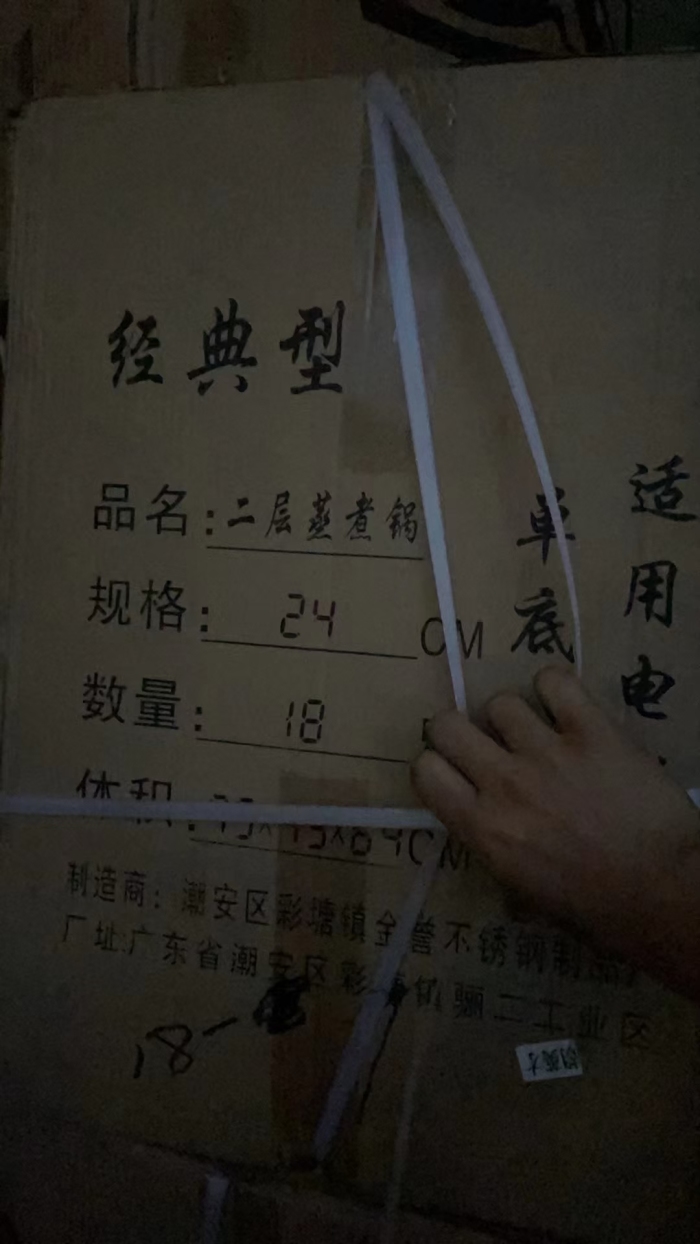 经典型
品名:二层蒸煮锅
规格: 24 CM
数量: 18
体积: CM
制造商: 潮安区彩塘镇金誉不锈钢制品
厂址:广东省潮安区彩 骊二工业区
18-
单底
适用电